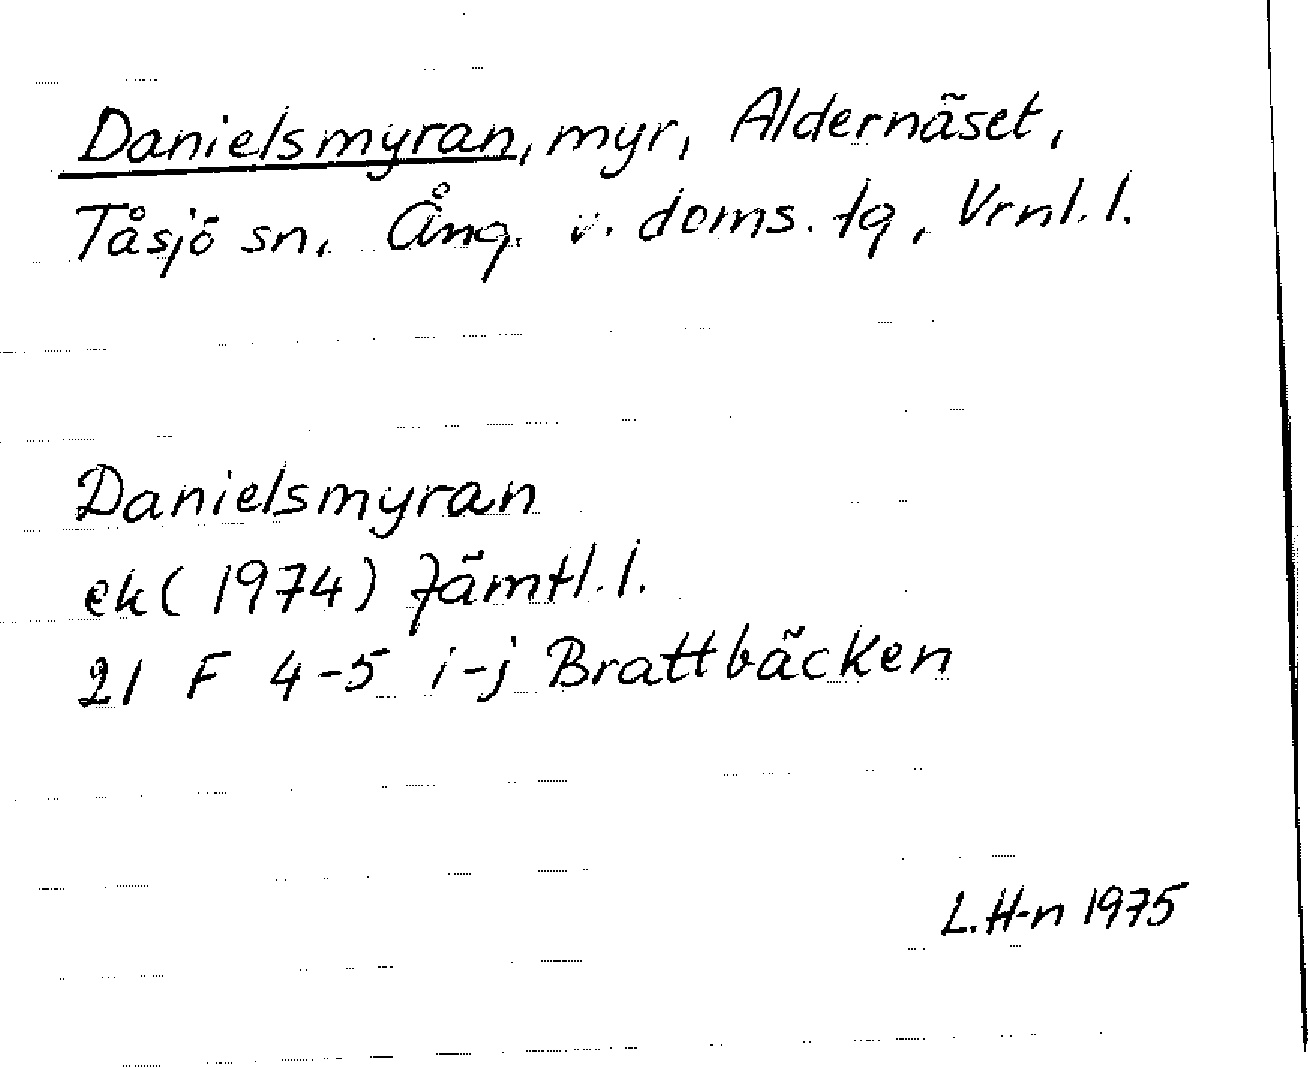 Danielsmyran, myr, Aldernäset,
Tåsjö sn, Ång. v. doms. tg, Vrnl. l.
Danielsmyran
ek (1974) Jämtl. l.
21 F 4-5 i-j Brattbäcken
L. H-n 1975